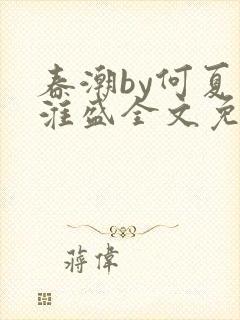 春潮by何夏
淮盛全文免
蒋偉